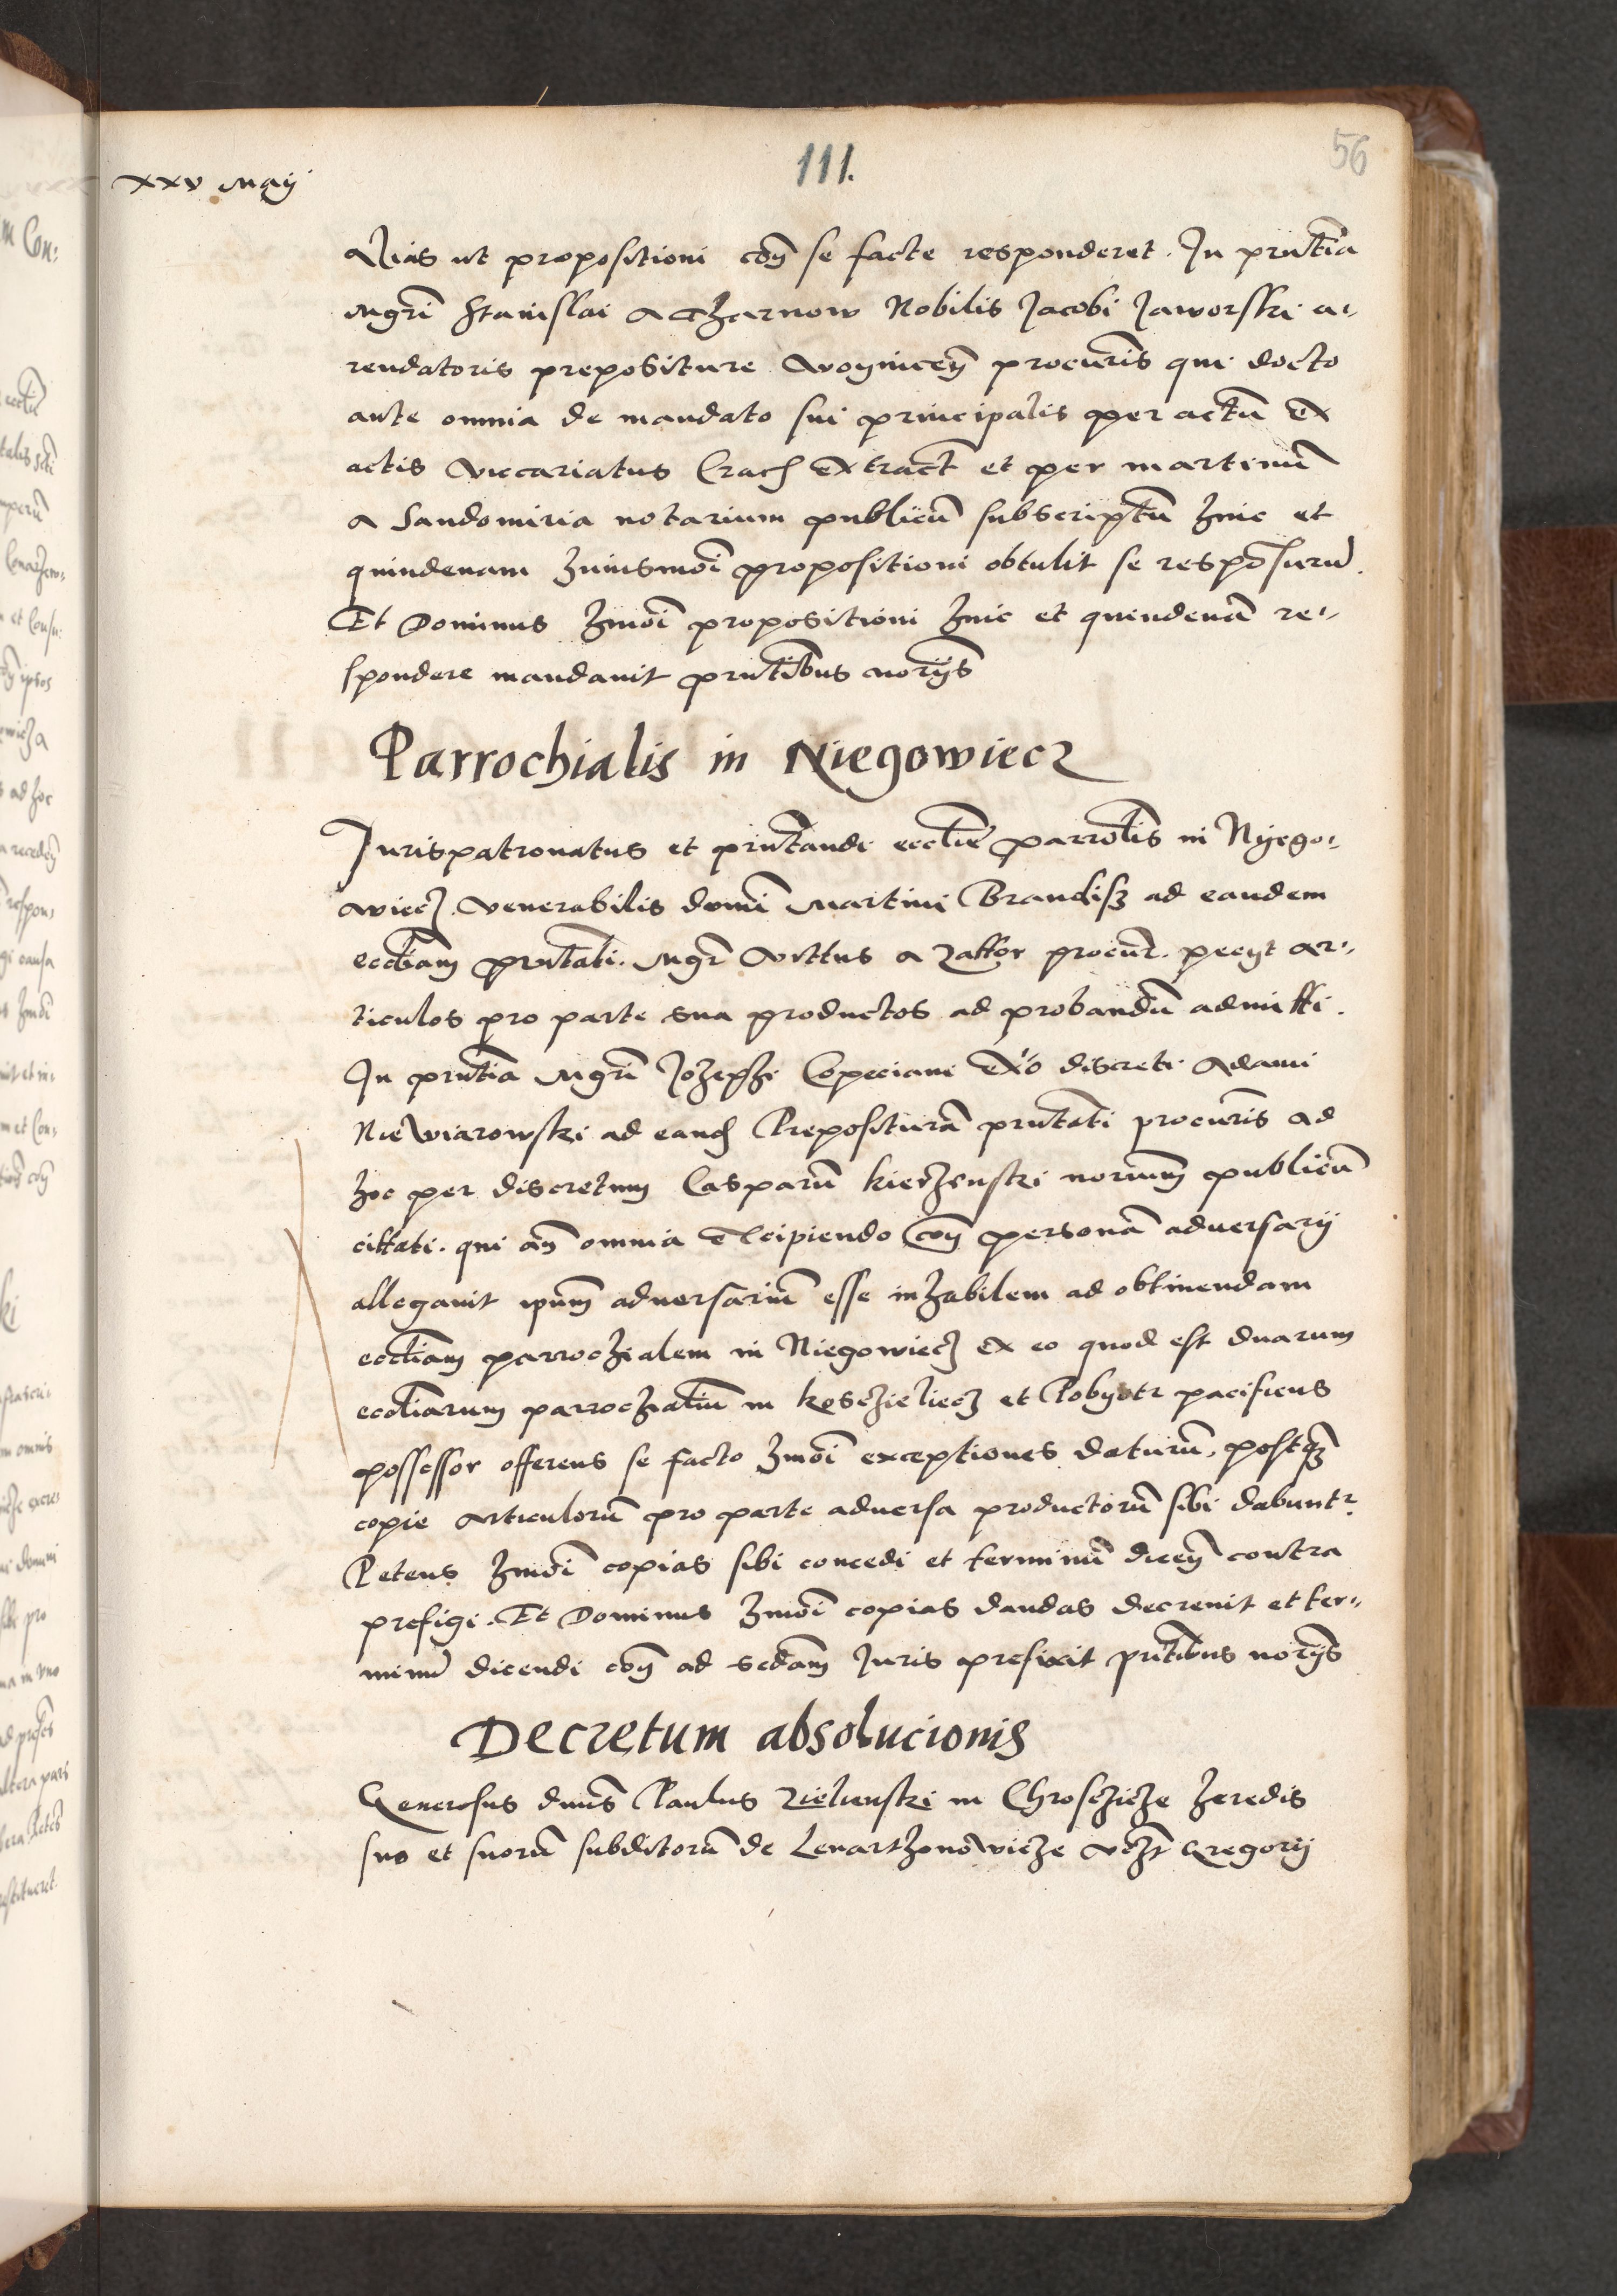 111.
56
xxv Maÿ
Alias ut propositioni cōn se facte responderet. In pñtia
Mgrī Stanislai a Czarnow Nobilis Jacobi Jaworski a-
rendatoris prepositure Woynicen procur̄is qui docto
ante omnia de mandato sui principalis per actū ex
actis vicariatus Crac extract et per martinū
a Sandomiria notarium publicū subscriptū hinc et
quindenam huiusmōi propositioni obtulit se respōsurū.
Et Dominus hmōi propositioni hinc et quindenā re-
spondere mandauit pñtibus notriis
Parrochialis in Niegowiecz
Jurispatronatus et pñtandi eccliē parrōlis in Nyego-
wiecz venerabilis domī Martini Brandisz ad eandem
eccliam pñtati. Mgr Vittus a Zattor procur. pecyt ar-
ticulos pro parte sua productos ad probandū admitti.
In pñtia Mgrī Jozephi Copeciani ex̄o discreti Adami
Niewiarowski ad eand Preposituram pñtati procur̄is ad
hoc per discretum Casparū kieczenski noriūm publicū
cittati. qui añ omnia excipiendo con personā adversarij
allegauit ipūm adversariū esse inhabilem ad obtinendam
eccliam parrochialem in Niegowiecz ex eo quod est duarum
eccliarum parrochialiū in kosczieliecz et Pobyotr pacificus
possessor offerens se facto hmōi exceptiones daturū, postq̄
copie articulorū pro parte adversa productorū sibi dabuntr.
Petens hmōi copias sibi concedi et terminū dicen contra
prefigi. Et Dominus hmōi copias dandas decreuit et ter-
minū dicendi con ad scdam Juris prefixit pñtibus notriis
Decretum absolucionis
Generosus dnūs Paulus Zielienski in Chrosczicze heredis
suo et suorū subditorū de Lenartzowicze vczt Gregorij